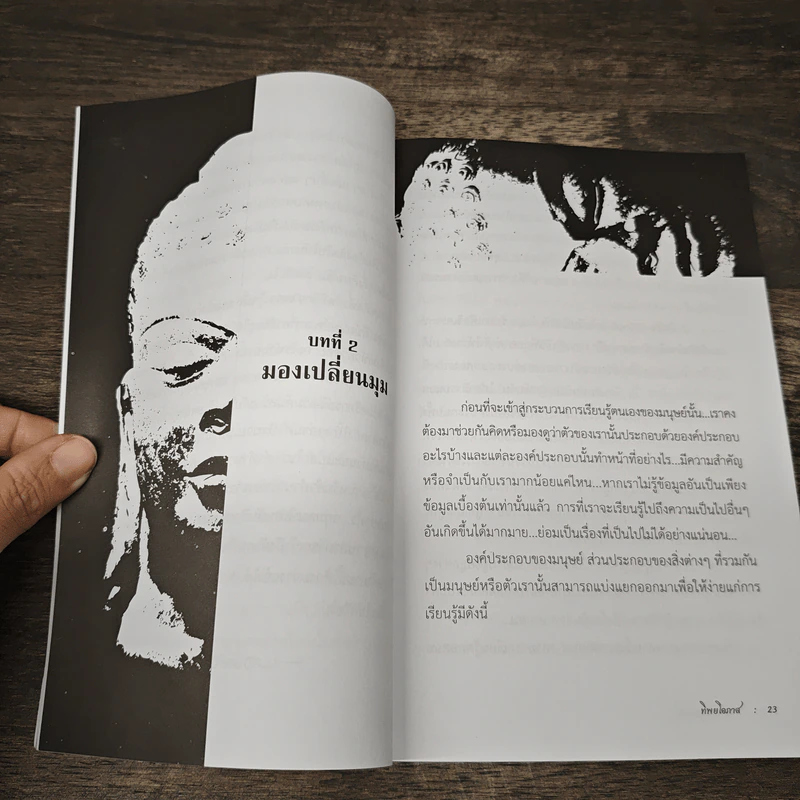 บทที่ 2
มองเปลี่ยนมุม
ก่อนที่จะเข้าสู่กระบวนการเรียนรู้ตนเองของมนุษย์นั้น...เราคง
ต้องมาช่วยกันคิดหรือมองดูว่าตัวของเรานั้นประกอบด้วยองค์ประกอบ
อะไรบ้างและแต่ละองค์ประกอบนั้นทำหน้าที่อย่างไร...มีความสำคัญ
หรือจำเป็นกับเรามากน้อยแค่ไหน...หากเราไม่รู้ข้อมูลอันเป็นเพียง
ข้อมูลเบื้องต้นเท่านั้นแล้ว การที่เราจะเรียนรู้ไปถึงความเป็นไปอื่นๆ
อันเกิดขึ้นได้มากมาย...ย่อมเป็นเรื่องที่เป็นไปไม่ได้อย่างแน่นอน...
องค์ประกอบของมนุษย์ ส่วนประกอบของสิ่งต่างๆ ที่รวมกัน
เป็นมนุษย์หรือตัวเรานั้นสามารถแบ่งแยกออกมาเพื่อให้ง่ายแก่การ
เรียนรู้มีดังนี้
ทิพยโอภาส : 23